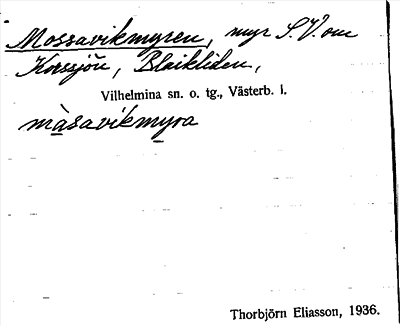 Mossavikmyren, myr S.V. om
Korssjön, Blaikliden,
Vilhelmina sn. o. tg., Västerb. l.
màsavikmyra
Thorbjörn Eliasson, 1936.